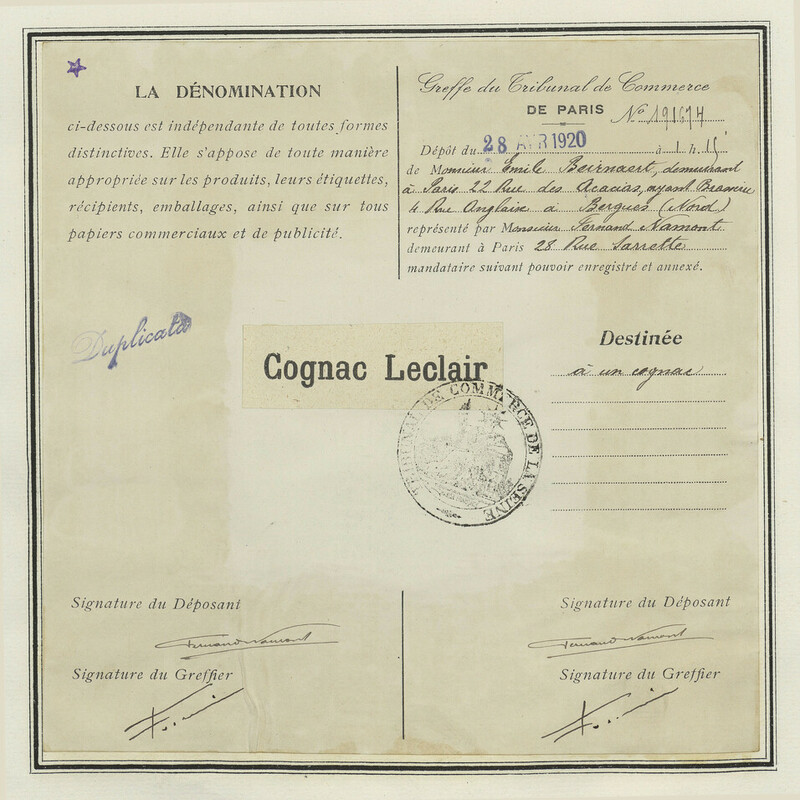 LA DÉNOMINATION
ci-dessous est indépendante de toutes formes
distinctives. Elle s'appose de toute manière
appropriée sur les produits, leurs étiquettes,
récipients, emballages, ainsi que sur tous
papiers commerciaux et de publicité.
Greffe du Tribunal de Commerce
DE PARIS No 191674
Dépôt du 28 AVR 1920 à 14.15
de Monsieur Emile Beirnaert, demeurant
à Paris 22 Rue des Acacias, ayant
4 Rue Anglaise à Bergues (Nord)
représenté par Monsieur Fernand Namont
demeurant à Paris 28 Rue Sarrette
mandataire suivant pouvoir enregistré et annexé.
Duplicata
Cognac Leclair
Destinée
à un cognac
TRIBUNAL DE COMMERCE DE LA SEINE
Signature du Déposant
Fernand Namont
Signature du Greffier
Signature du Déposant
Fernand Namont
Signature du Greffier